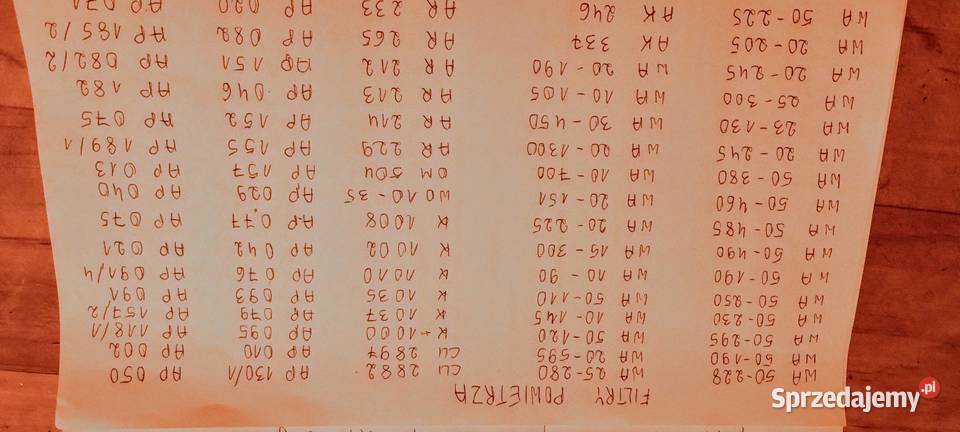 FILTRY POWIETRZA
WA 50-228 WA 25-280 CU 2882 AP 130/1 AP 050
WA 50-190 WA 20-595 CU 2897 AP 010 AP 002
WA 50-295 WA 50-120 K 1000 AP 095 AP 118/1
WA 50-230 WA 10-145 K 1037 AP 079 AP 157/2
WA 50-250 WA 50-110 K 1035 AP 093 AP 091
WA 50-190 WA 10-90 K 1010 AP 076 AP 091/4
WA 50-490 WA 15-300 K 1002 AP 042 AP 021
WA 50-485 WA 20-225 K 1008 AP 0,77 AP 075
WA 50-460 WA 20-151 WO 10-35 AP 029 AP 040
WA 50-380 WA 10-700 OM 504 AP 157 AP 013
WA 20-245 WA 20-1300 AR 229 AP 155 AP 189/1
WA 23-130 WA 30-450 AR 214 AP 152 AP 075
WA 25-300 WA 10-105 AR 213 AP 046 AP 182
WA 20-245 WA 20-190 AR 212 AP 151 AP 082/2
WA 20-205 AK 337 AR 265 AP 082 AP 185/2
WA 50-225 AK 246 AR 233 AP 020 AP
Sprzedajemy.pl